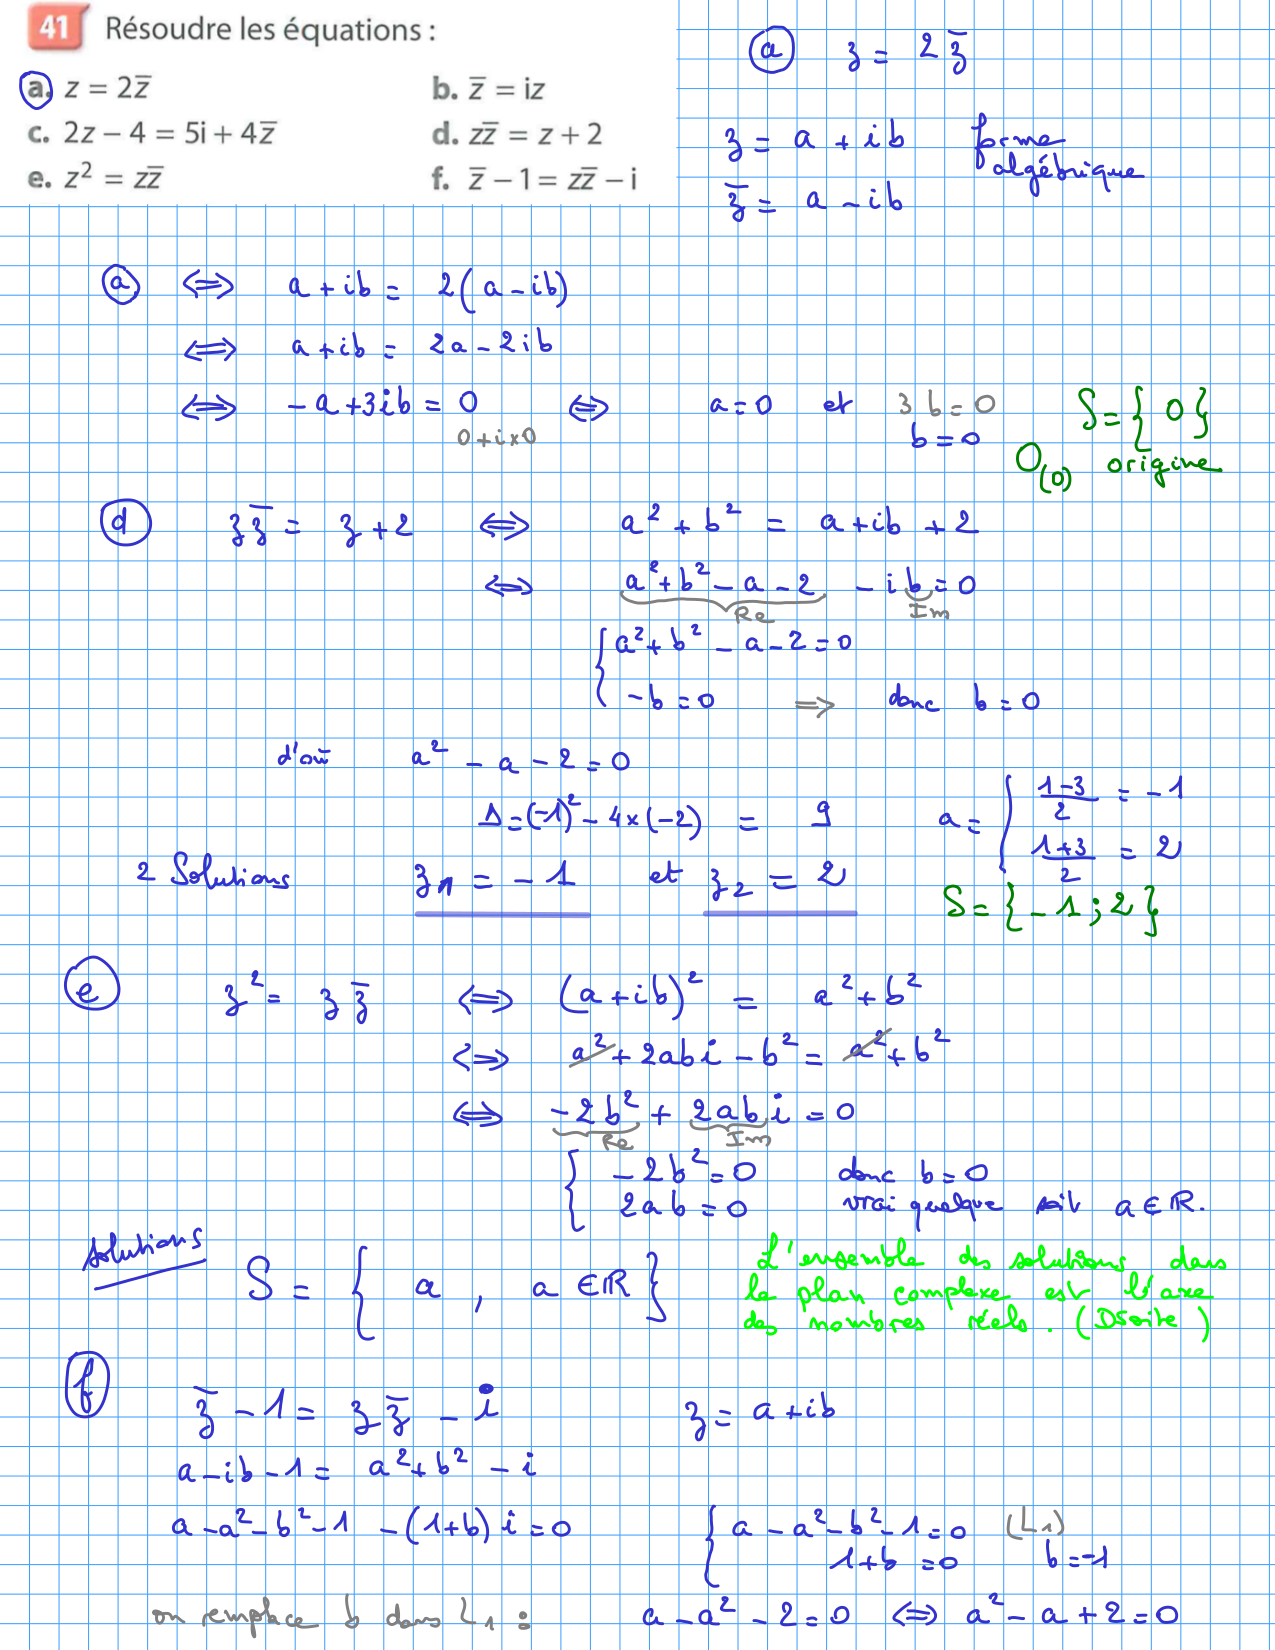 41 Résoudre les équations :
a. z = 2z̅ b. z̅ = iz
c. 2z − 4 = 5i + 4z̅ d. zz̅ = z + 2
e. z² = zz̅ f. z̅ − 1 = zz̅ − i
(a) z = 2z̅
z = a + ib forme algébrique
z̅ = a − ib
(a) ⇔ a + ib = 2(a − ib)
⇔ a + ib = 2a − 2ib
⇔ −a + 3ib = 0 ⇔ a = 0 et 3b = 0 S = { 0 }
0 + i×0 b = 0 O(0) origine
(d) zz̅ = z + 2 ⇔ a² + b² = a + ib + 2
⇔ a² + b² − a − 2 − ib = 0
Re Im
{ a² + b² − a − 2 = 0
−b = 0 ⇒ donc b = 0
d'où a² − a − 2 = 0
Δ = (−1)² − 4×(−2) = 9 a = { (1−3)/2 = −1
(1+3)/2 = 2
2 Solutions z₁ = −1 et z₂ = 2
S = { −1 ; 2 }
(e) z² = zz̅ ⇔ (a + ib)² = a² + b²
⇔ a² + 2abi − b² = a² + b²
⇔ −2b² + 2abi = 0
Re Im
{ −2b² = 0 donc b = 0
2ab = 0 vrai quelque soit a ∈ ℝ.
solutions S = { a , a ∈ ℝ }
L'ensemble des solutions dans
le plan complexe est l'axe
des nombres réels. (Droite)
(f) z̅ − 1 = zz̅ − i z = a + ib
a − ib − 1 = a² + b² − i
a − a² − b² − 1 − (1 + b) i = 0 { a − a² − b² − 1 = 0 (L₁)
1 + b = 0 b = −1
on remplace b dans L₁ : a − a² − 2 = 0 ⇔ a² − a + 2 = 0